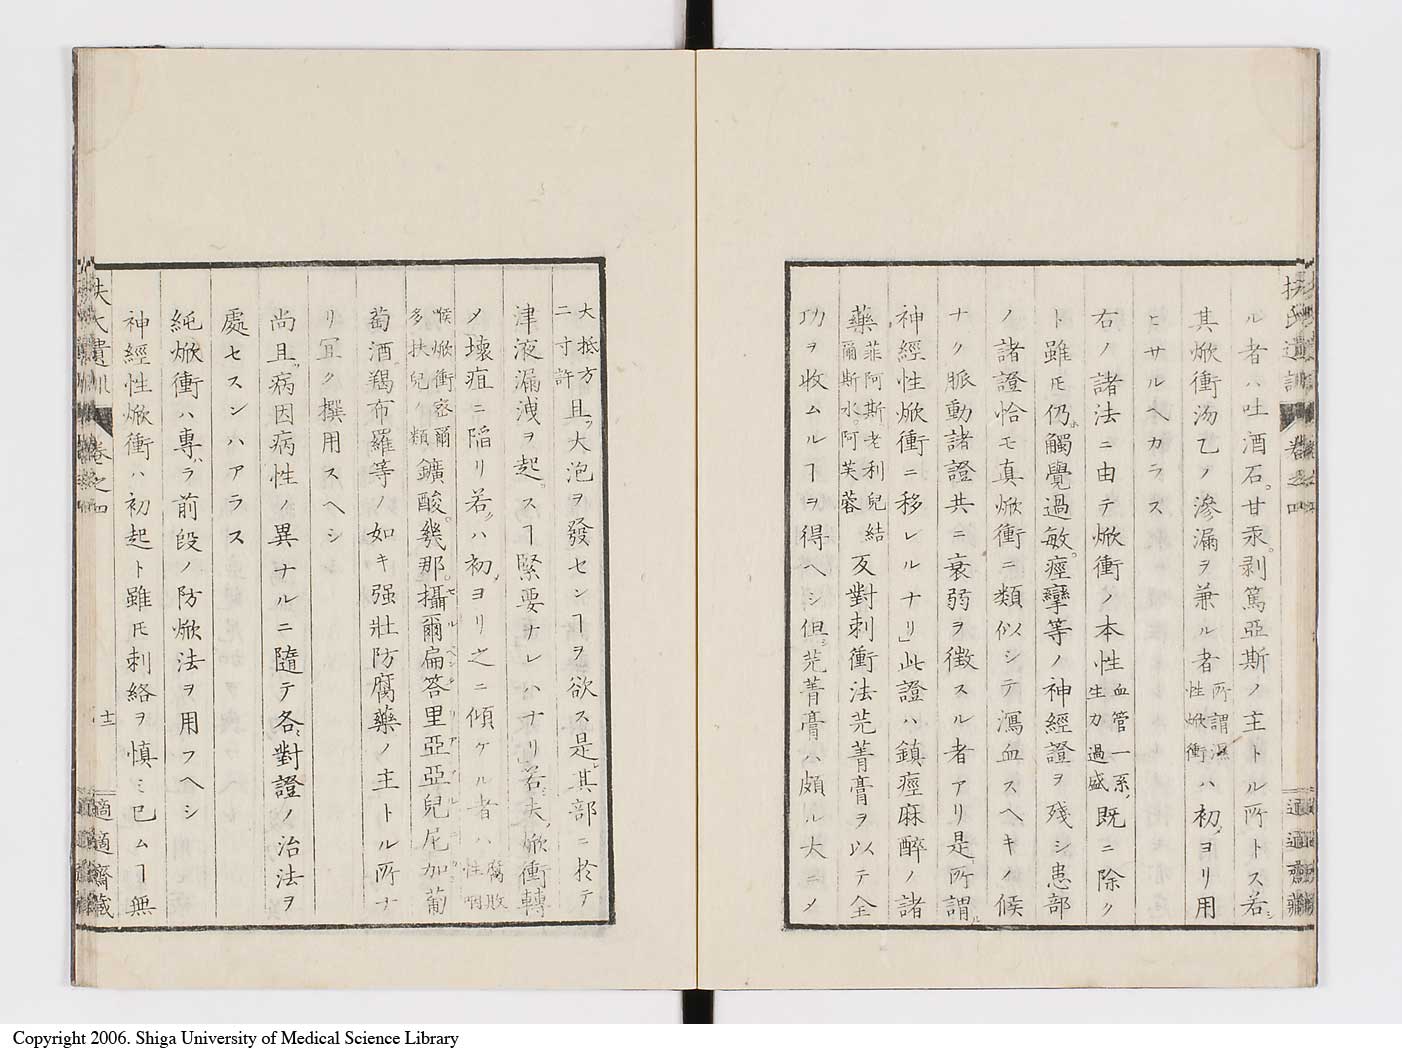 扶氏遺訓 卷之四 適適齋藏
ル者ハ吐酒石。甘汞。剥篤亞斯ノ主トル所トス若シ
其焮衝汤乙ノ滲漏ヲ兼ル者所謂濕性焮衝ハ初ヨリ用
ヒサルヘカラス
右ノ諸法ニ由テ焮衝ノ本性血管一系ノ生力過盛既ニ除ク
ト雖𪜈仍ホ觸覺過敏。痙攣等ノ神經證ヲ殘シ患部
ノ諸證恰モ真焮衝ニ類似シテ瀉血スヘキノ候
ナク脈動諸證共ニ衰弱ヲ徴スル者アリ是所謂ル
神經性焮衝ニ移レルナリ」此證ハ鎮痙麻醉ノ諸
藥菲阿斯老利兒結爾斯水。阿芙蓉及對刺衝法芫菁膏ヲ以テ全
功ヲ收ムルヿヲ得ヘシ但シ芫菁膏ハ頗ル大ニメ
大抵方二寸許且ツ大泡ヲ發センヿヲ欲ス是レ其部ニ於テ
津液漏洩ヲ起スヿ緊要ナレハナリ」若シ夫レ焮衝轉
メ壞疽ニ陷リ若クハ初ヨリ之ニ傾ケル者ハ腐敗性咽
喉焮衝。容爾多扶兒ノ類鑛酸。幾那。攝爾扁答里亞亞兒尼加葡
萄酒羯布羅等ノ如キ强壯防腐藥ノ主トル所ナ
リ冝ク撰用スヘシ
尚且ツ病因病性ノ異ナルニ隨テ各對證ノ治法ヲ
處セスンハアラス
純焮衝ハ專ラ前段ノ防焮法ヲ用フヘシ
神經性焮衝ハ初起ト雖𪜈刺絡ヲ慎ミ已ムヿ無
扶氏遺訓 卷之四 十一 適適齋藏
Copyright 2006. Shiga University of Medical Science Library